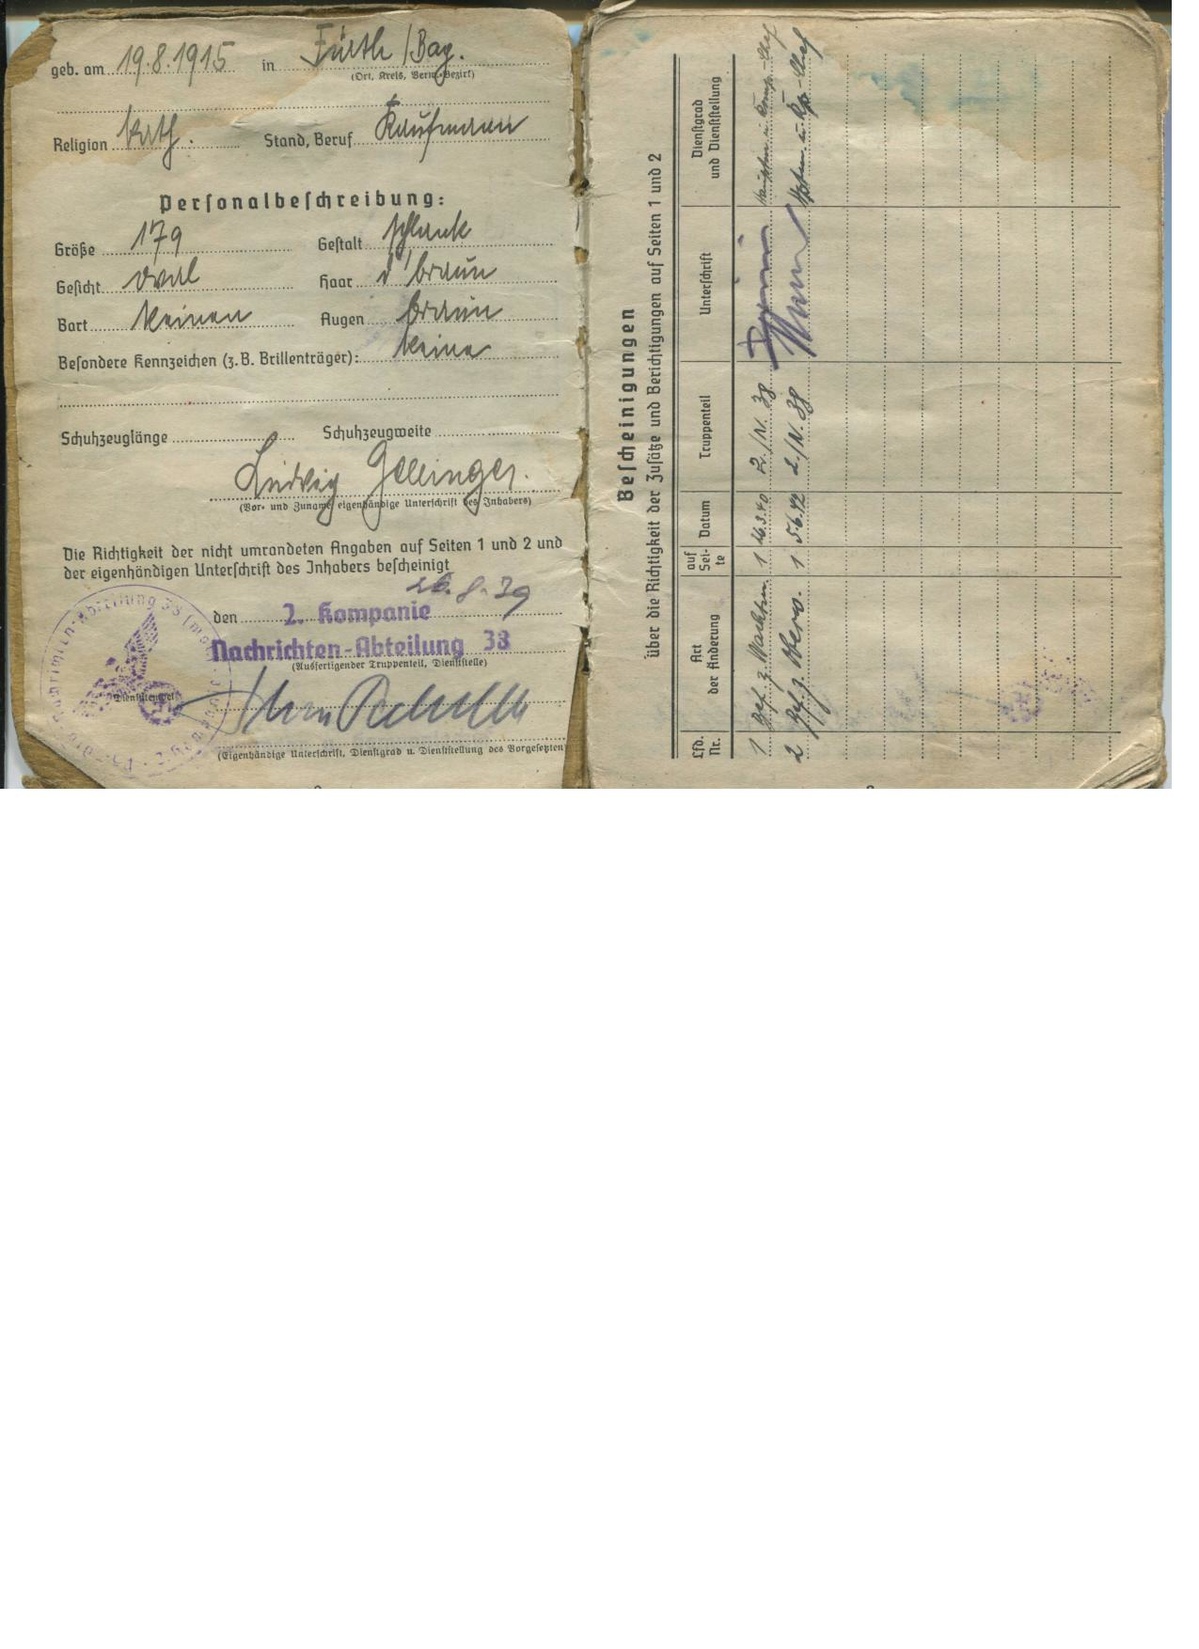 geb. am 19.8.1915 in Fürth /Bay.
(Ort, Kreis, Verw.-Bezirk)
Religion Kath. Stand, Beruf Kaufmann
Personalbeschreibung:
Größe 179 Gestalt schlank
Gesicht oval Haar d'braun
Bart keinen Augen braun
Besondere Kennzeichen (z. B. Brillenträger): keine
Schuhzeuglänge Schuhzeugweite
Ludwig
(Vor- und Zuname, eigenhändige Unterschrift des Inhabers)
Die Richtigkeit der nicht umrandeten Angaben auf Seiten 1 und 2 und
der eigenhändigen Unterschrift des Inhabers bescheinigt
den 26.8.39
2. Kompanie
Nachrichten-Abteilung 38
(Ausfertigender Truppenteil, Dienststelle)
(Eigenhändige Unterschrift, Dienstgrad u. Dienststellung des Vorgesetzten)
Nachrichten-Abteilung 38 (mot)
Bescheinigungen
über die Richtigkeit der Zusätze und Berichtigungen auf Seiten 1 und 2
Lfd. Nr. Art der Änderung auf Seite Datum Truppenteil Unterschrift Dienstgrad und Dienststellung
1 Bef. z. Wachtm. 1 26.3.40 2./N. 38 Hauptm. u. Komp.-Chef
2 Bef. z. Oberw. 1 5.6.42 2./N. 38 Hptm. u. Kp.-Chef